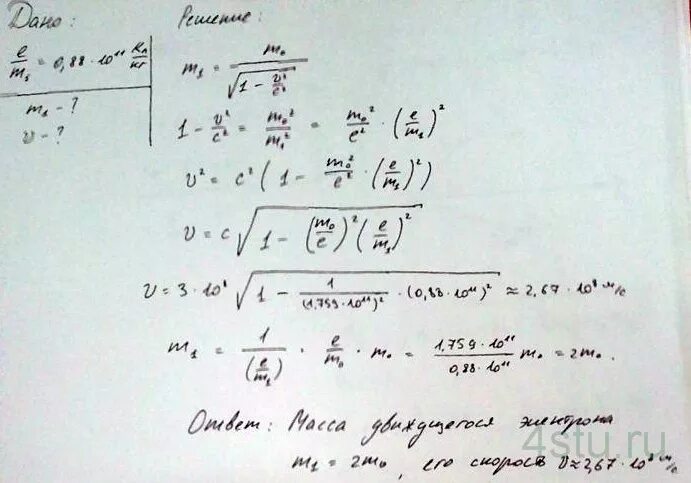 Дано:
e/m₁ = 0,88 · 10¹¹ Кл/кг
m₁ - ?
v - ?
Решение:
m₁ = m₀ / √(1 - v²/c²)
1 - v²/c² = m₀²/m₁² = m₀²/e² · (e/m₁)²
v² = c² (1 - m₀²/e² · (e/m₁)²)
v = c √(1 - (m₀/e)² (e/m₁)²)
v = 3 · 10⁸ √(1 - 1/(1,759 · 10¹¹)² · (0,88 · 10¹¹)²) ≈ 2,67 · 10⁸ м/с
m₁ = 1/(e/m₁) · e/m₀ · m₀ = 1,759 · 10¹¹ / 0,88 · 10¹¹ m₀ = 2m₀.
Ответ: Масса движущегося электрона
m₁ = 2m₀, его скорость v ≈ 2,67 · 10⁸ м/с
4stu.ru